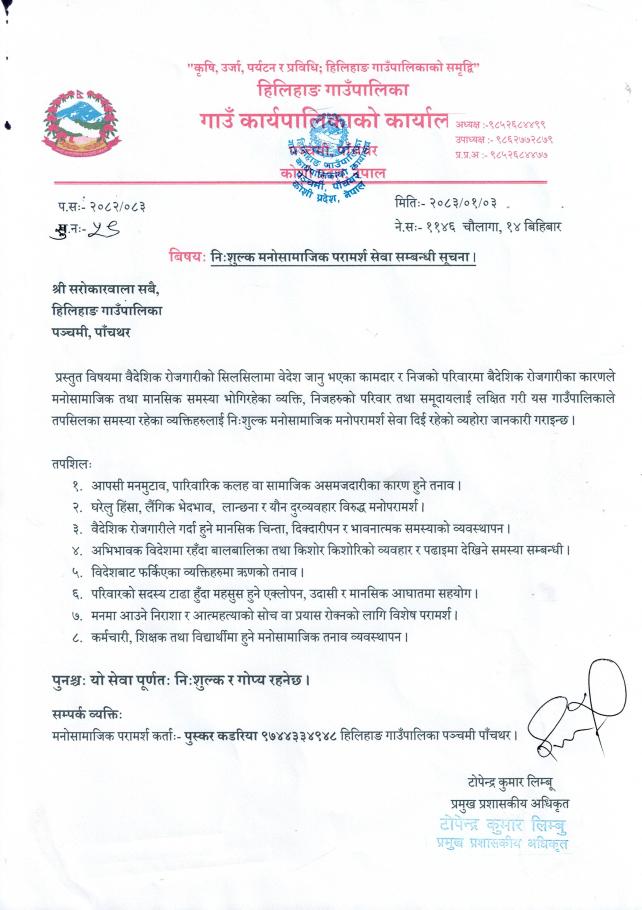 "कृषि, उर्जा, पर्यटन र प्रविधि; हिलिहाङ गाउँपालिकाको समृद्वि"
हिलिहाङ गाउँपालिका
गाउँ कार्यपालिकाको कार्यालय
अध्यक्ष :-९८५२६८४४९९
उपाध्यक्ष :-९८६२७७२८७९
प्र.प्र.अ :-९८५२६८४४७७
पञ्चमी, पाँचथर
कोशी प्रदेश, नेपाल
हिलिहाङ गाउँपालिका
पञ्चमी, पाँचथर
कोशी प्रदेश, नेपाल
प.सः- २०८२/०८३
मितिः- २०८३/०१/०३
च.नः-
ने.सः- ११४६ चौलागा, १४ बिहिबार
विषयः निःशुल्क मनोसामाजिक परामर्श सेवा सम्बन्धी सूचना।
श्री सरोकारवाला सबै,
हिलिहाङ गाउँपालिका
पञ्चमी, पाँचथर
प्रस्तुत विषयमा वैदेशिक रोजगारीको सिलसिलामा वेदेश जानु भएका कामदार र निजको परिवारमा बैदेशिक रोजगारीका कारणले
मनोसामाजिक तथा मानसिक समस्या भोगिरहेका व्यक्ति, निजहरुको परिवार तथा समूदायलाई लक्षित गरी यस गाउँपालिकाले
तपसिलका समस्या रहेका व्यक्तिहरुलाई निःशुल्क मनोसामाजिक मनोपरामर्श सेवा दिई रहेको व्यहोरा जानकारी गराइन्छ।
तपशिलः
१. आपसी मनमुटाव, पारिवारिक कलह वा सामाजिक असमजदारीका कारण हुने तनाव।
२. घरेलु हिंसा, लैंगिक भेदभाव, लान्छना र यौन दुरव्यवहार विरुद्ध मनोपरामर्श।
३. वैदेशिक रोजगारीले गर्दा हुने मानसिक चिन्ता, दिक्दारीपन र भावनात्मक समस्याको व्यवस्थापन।
४. अभिभावक विदेशमा रहँदा बालबालिका तथा किशोर किशोरिको व्यवहार र पढाइमा देखिने समस्या सम्बन्धी।
५. विदेशबाट फर्किएका व्यक्तिहरुमा ऋणको तनाव।
६. परिवारको सदस्य टाढा हुँदा महसुस हुने एक्लोपन, उदासी र मानसिक आघातमा सहयोग।
७. मनमा आउने निराशा र आत्महत्याको सोच वा प्रयास रोक्नको लागि विशेष परामर्श।
८. कर्मचारी, शिक्षक तथा विद्यार्थीमा हुने मनोसामाजिक तनाव व्यवस्थापन।
पुनश्चः यो सेवा पूर्णतः निःशुल्क र गोप्य रहनेछ।
सम्पर्क व्यक्तिः
मनोसामाजिक परामर्श कर्ताः- पुस्कर कडरिया ९७४४३३४९४८ हिलिहाङ गाउँपालिका पञ्चमी पाँचथर।
टोपेन्द्र कुमार लिम्बू
प्रमुख प्रशासकीय अधिकृत
टोपेन्द्र कुमार लिम्बु
प्रमुख प्रशासकीय अधिकृत